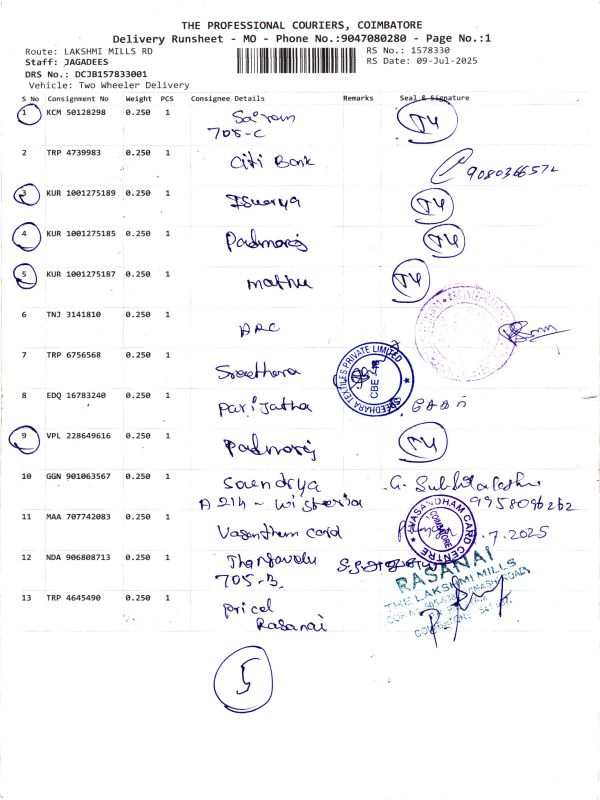 THE PROFESSIONAL COURIERS, COIMBATORE
Delivery Runsheet - MO - Phone No.:9047080280 - Page No.:1
Route: LAKSHMI MILLS RD
RS No.: 1578330
Staff: JAGADEES
RS Date: 09-Jul-2025
DRS No.: DCJB157833001
Vehicle: Two Wheeler Delivery
S No Consignment No Weight PCS Consignee Details Remarks Seal & Signature
1 KCM 50128298 0.250 1 Sairam
705-C
2 TRP 4739983 0.250 1 Citi Bank 9080366572
3 KUR 1001275189 0.250 1 Iswarya
4 KUR 1001275185 0.250 1 Padmaraj
5 KUR 1001275187 0.250 1 mathu
6 TNJ 3141810 0.250 1 ARC
7 TRP 6756568 0.250 1 Sreedhara
SREEDHARA TEXTILES PRIVATE LIMITED
CBE - 18
8 EDQ 16783240 0.250 1 Parijatha
9 VPL 228649616 0.250 1 Padmaraj
10 GGN 901063567 0.250 1 Soendrya G.
A 214 - Wisteria 9958096262
11 MAA 707742083 0.250 1 Vasantham card .7.2025
VASANDHAM CARD CENTRE
COIMBATORE
12 NDA 906808713 0.250 1 Thangavelu
705-B
RASANAI
THE LAKSHMI MILLS
13 TRP 4645490 0.250 1 Pricol
Rasanai
5